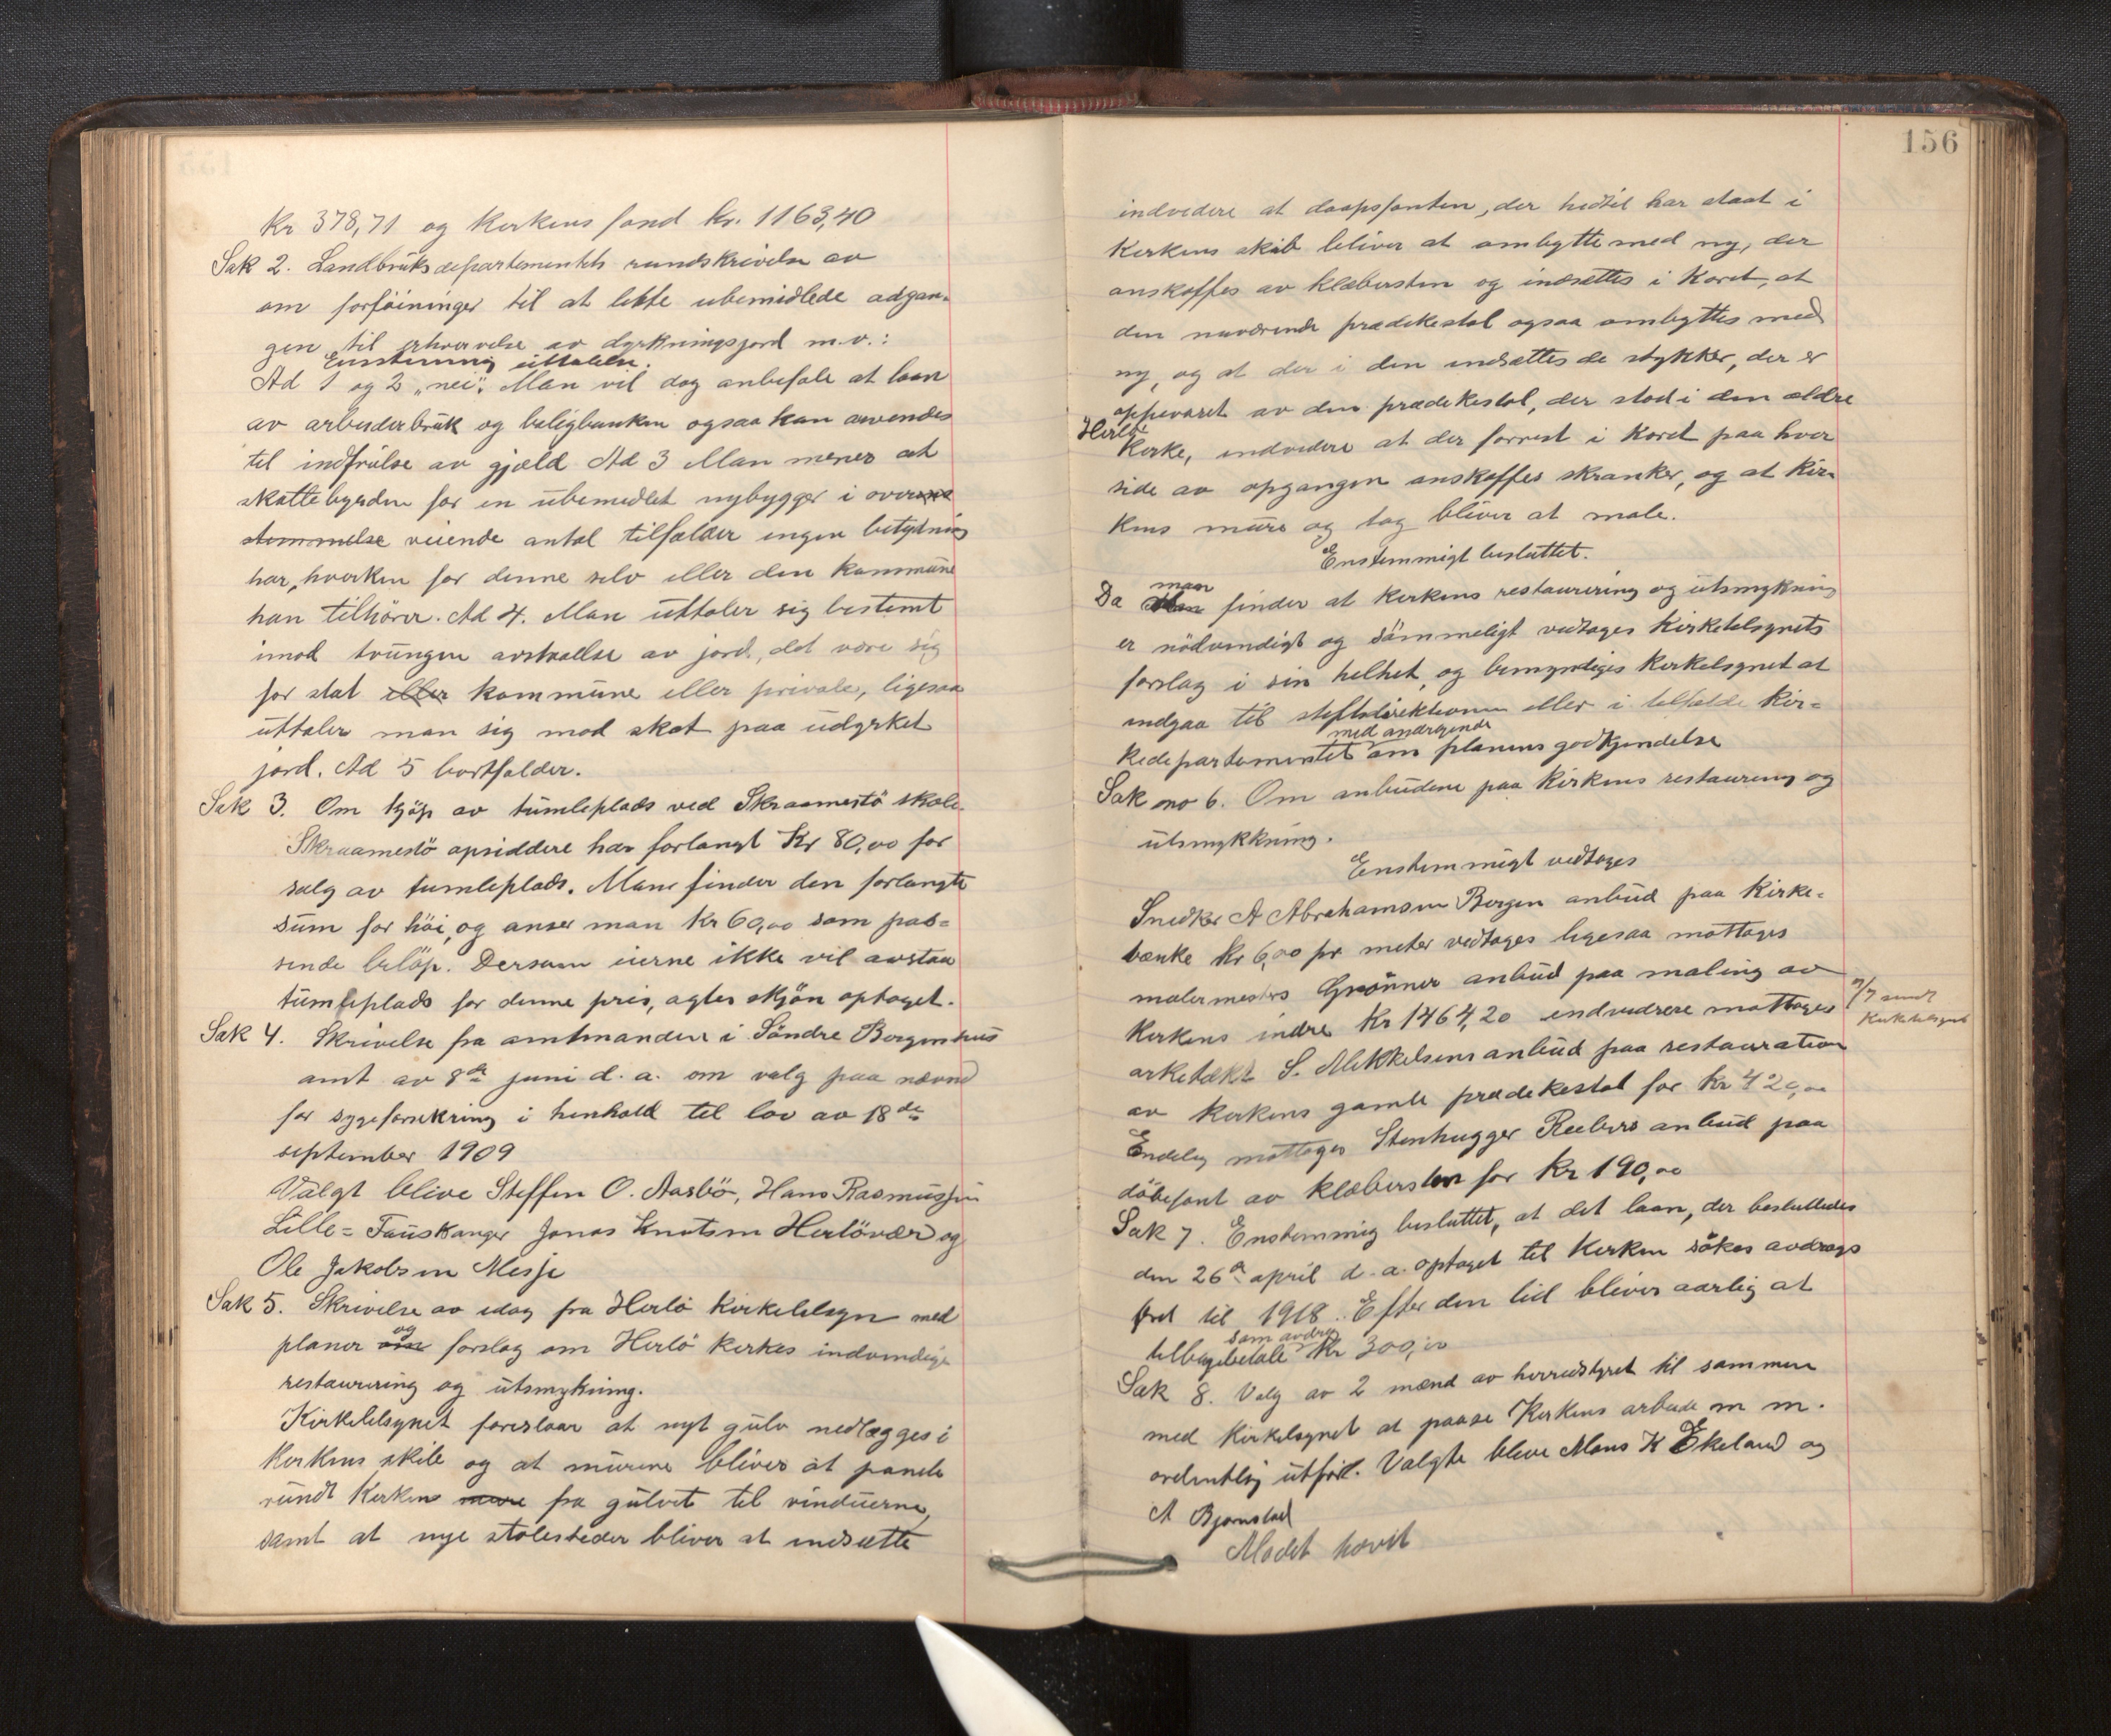 Kr 378,71 og Kirkens fond kr. 1163,40
Sak 2. Landbruksdepartementets rundskrivelse av
om forföininger til at lette ubemidlede adgan-
gen til erhvervelse av dyrkningsjord m.v.:
Enstemmig uttalelse.
Ad 1 og 2 „nei“. Man vil dog anbefale at laan
av arbeiderbruk og boligbanken ogsaa kan anvendes
til indfrielse av gjæld Ad 3 Man mener at
skattebyrden for en ubemidlet nybygger i overens
stemmelse veiende antal tilfælder ingen betydning
har, hverken for denne selv eller den kommune
han tilhörer. Ad 4. Man uttaler sig bestemt
imod tvungen avstaaelse av jord, det være sig
for stat eller kommune eller private, ligesaa
uttaler man sig mod skat paa udyrket
jord. Ad 5 bortfalder.
Sak 3. Om kjöp av tumleplads ved Skraamestö skole.
Skraamestö opsiddere har forlangt Kr 80,00 for
salg av tumleplads. Man finder den forlangte
sum for höi, og anser man kr 60,00 som pas-
sende belöp. Dersom eierne ikke vil avstaa
tumleplads for denne pris, agtes skjön optaget.
Sak 4. Skrivelse fra amtmanden i Söndre Bergenhus
amt av 8de juni d. a. om valg paa nævnd
for sygeforsikring i henhold til lov av 18de
september 1909
Valgt blive Steffen O. Aasbö, Hans Rasmussen
Lille-Fauskanger Jonas Knutsen Herlövær og
Ole Jakobsen Mesje
Sak 5. Skrivelse av idag fra Herlö kirketilsyn med
planer om og forslag om Herlö kirkes indvendige
restaurering og utsmykning.
Kirketilsynet foreslaar at nyt gulv nedlægges i
kirkens skib og at murene bliver at panele
rundt kirken mure fra gulvet til vinduerne,
samt at nye stolesteder bliver at indsætte
156
indvidere at daapsfonten, der hidtil har staat i
kirkens skib bliver at ombytte med ny, der
anskaffes av klæbersten og indsettes i koret, at
den nuværende prædikestol ogsaa ombyttes med
ny, og at der i den indsættes de stykker, der er
oppevaret av den prædikestol, der stod i den ældre
Herlö
kirke, indvidere at der forrest i koret paa hver
side av opgangen anskaffes skranker, og at kir-
kens mure og tag bliver at male.
Enstemmigt besluttet.
Da Man man finder at kirkens restaurering og utsmykning
er nödvendigt og sömmeligt vedtages kirketilsynets
forslag i sin helhet, og bemyndiges kirketilsynet at
indgaa til stiftsdirektionen eller i tilfælde kir-
kedepartementet med andragende om planens godkjendelse
Sak no 6. Om anbudene paa kirkens restaurering og
utsmykkning.
Enstemmigt vedtages
Snedker A Abrahamsen Bergen anbud paa kirke-
bænke kr 6,00 pr meter vedtages ligesaa mottages
malermesters Grönner anbud paa maling av
kirkens indre kr 1464,20 endvidere mottages
sendt
Kirketilsynet
arkitækt S. Mikkelsens anbud paa restauration
av kirkens gamle prædikestol for kr 420,00
Endelig mottages Stenhugger Reebers anbud paa
döbefont av klæbersten for kr 190,00
Sak 7. Enstemmig besluttet, at det laan, der besluttedes
den 26de april d. a. optaget til kirken sökes avdrags
fret til 1918. Efter den tid bliver aarlig at
tilbagebetale som avdrag kr 300,00
Sak 8. Valg av 2 mænd av herredstyret til sammen
med kirketilsynet at paase kirkens arbeide m m.
ordentlig utfört. Valgte bleve Mons K Ekeland og
A Bjørnstad
Mödet hævet